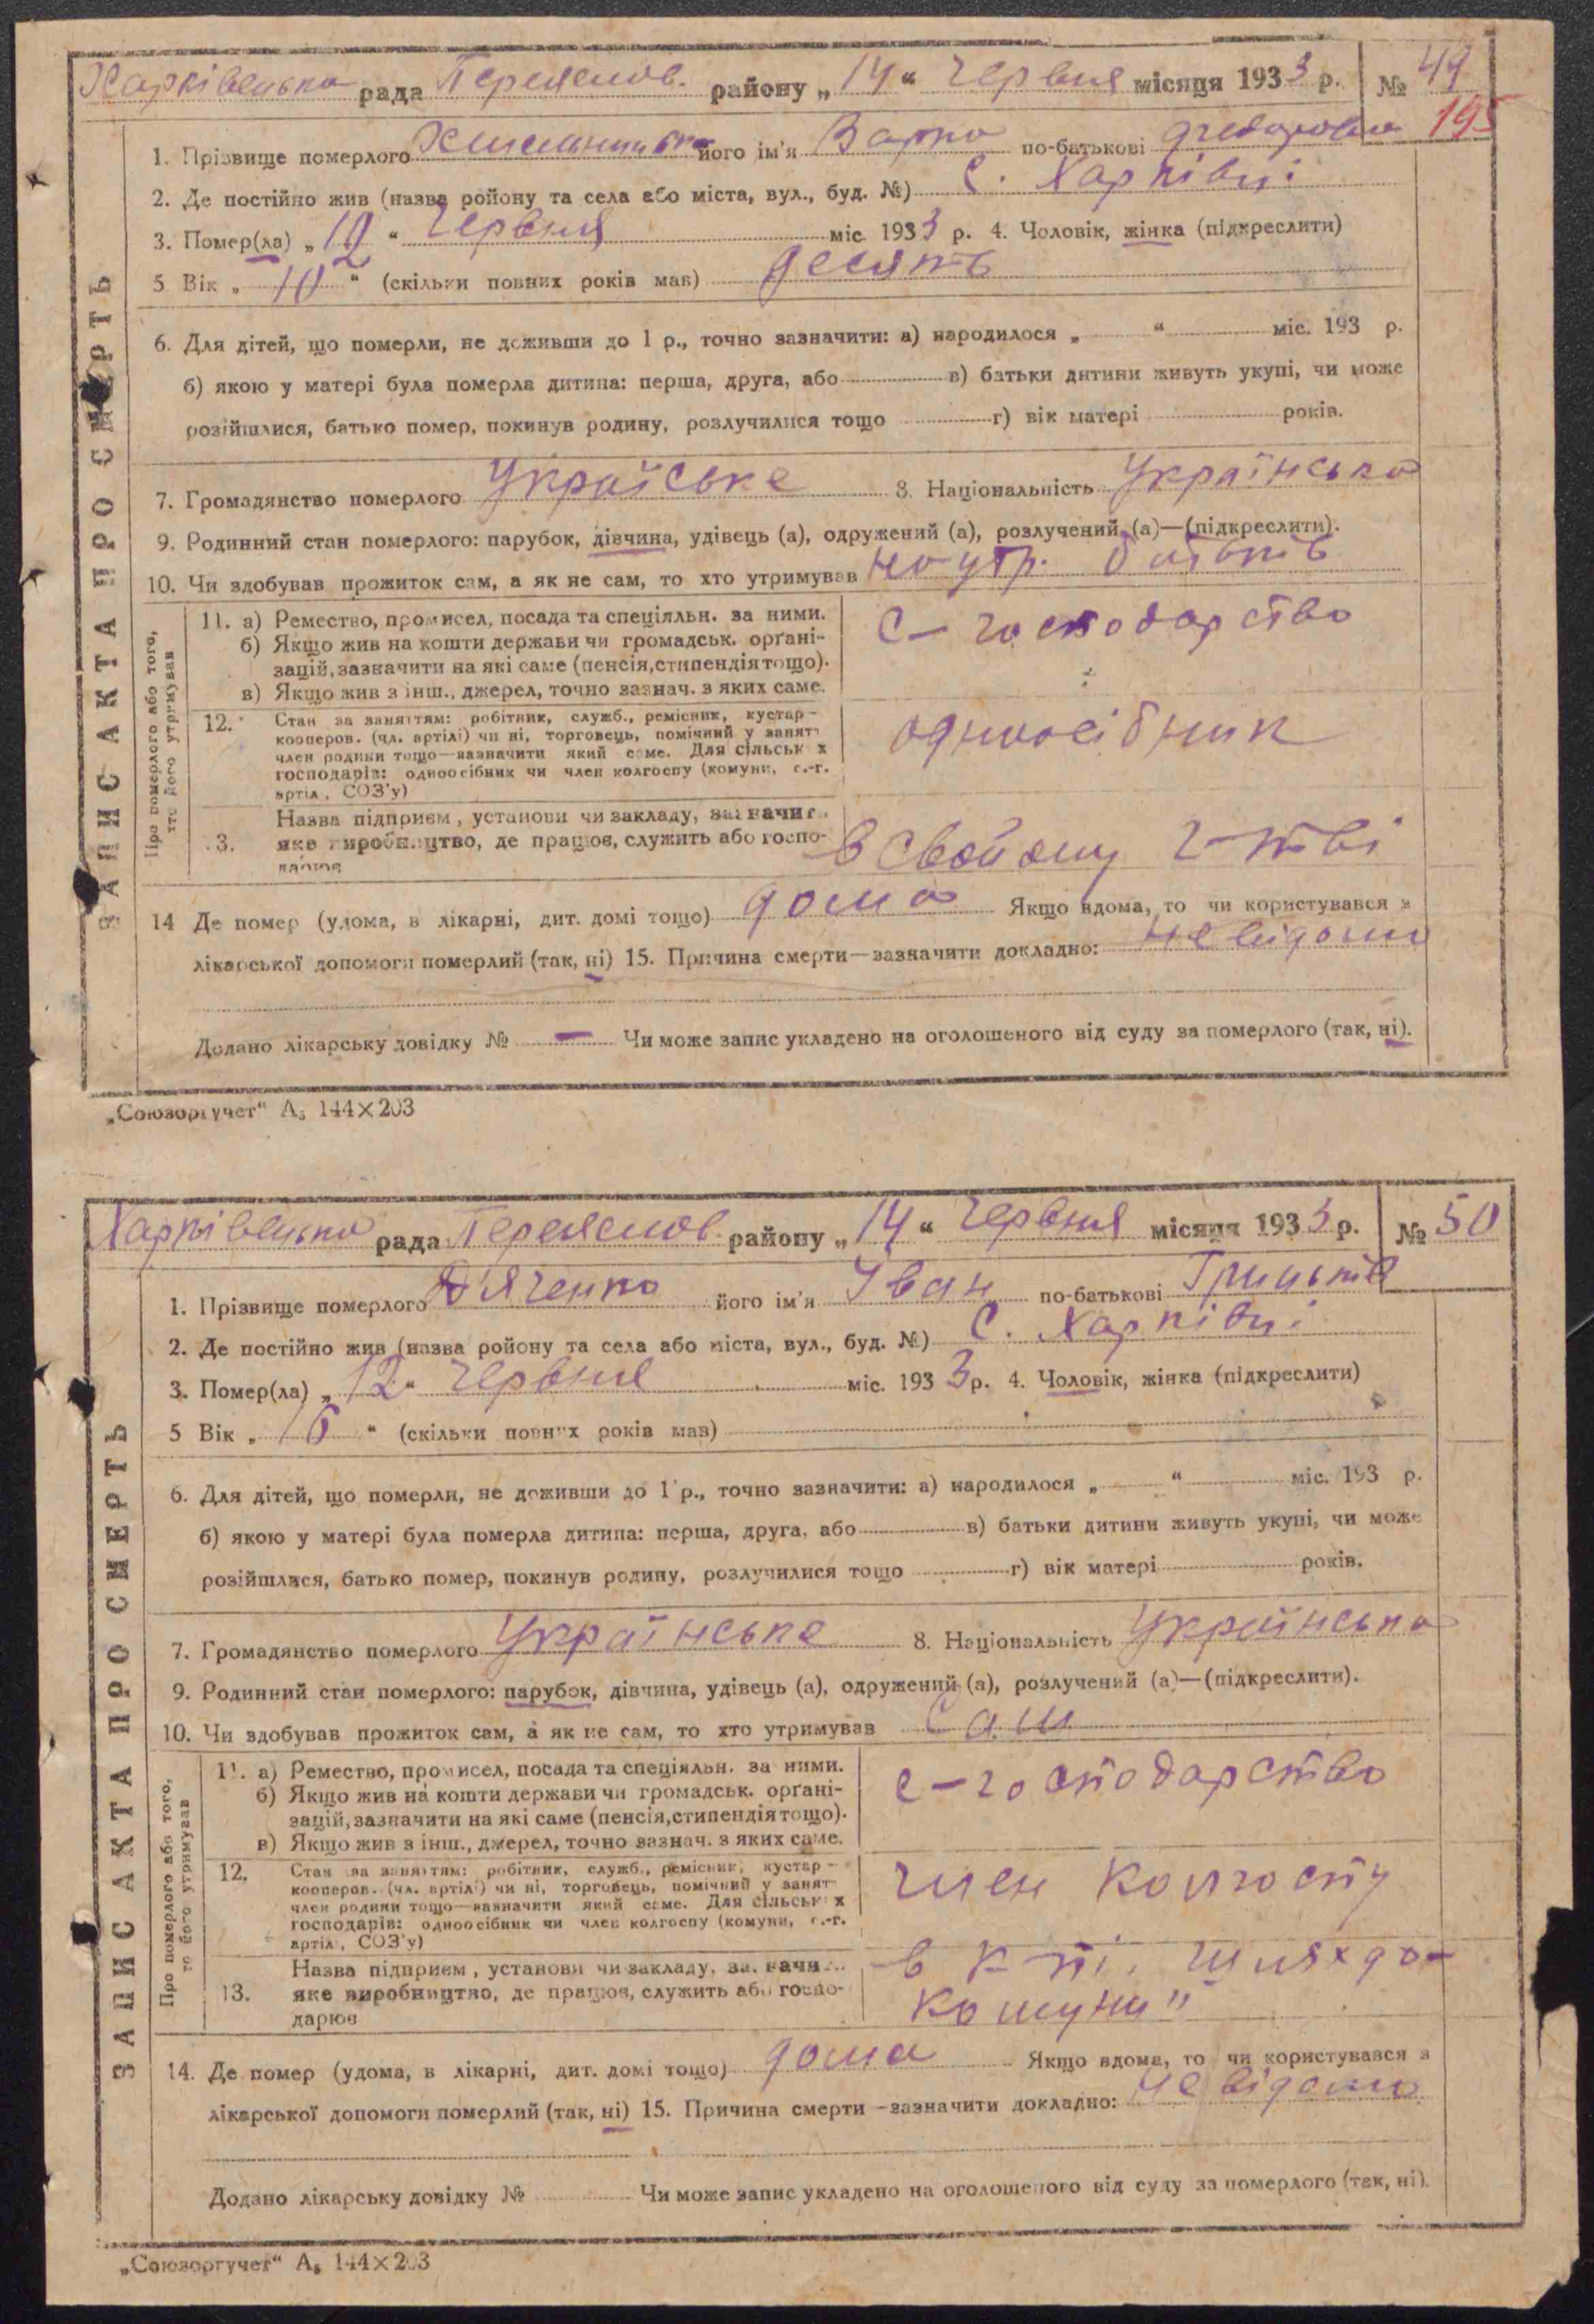 Харківецька рада Переяслов. району „14" Червня місяця 1933 р. № 49
195
1. Прізвище померлого його ім'я Варка по-батькові
2. Де постійно жив (назва ройону та села або міста, вул., буд. №) С. Харківці
3. Помер(ла) „12" Червня міс. 1933 р. 4. Чоловік, жінка (підкреслити)
5 Вік „10" (скільки повних років мав) десять
6. Для дітей, що померли, не доживши до 1 р., точно зазначити: а) народилося „ " міс. 193 р.
б) якою у матері була померла дитина: перша, друга, або в) батьки дитини живуть укупі, чи може
розійшлися, батько помер, покинув родину, розлучилися тощо г) вік матері років.
7. Громадянство померлого Украйське 8. Національність Українська
9. Родинний стан померлого: парубок, дівчина, удівець (а), одружений (а), розлучений (а)—(підкреслити).
10. Чи здобував прожиток сам, а як не сам, то хто утримував на утр. батьків
ЗАПИС АКТА ПРО СМЕРТЬ
Про померлого або того,
хто його утримував
11. а) Ремество, промисел, посада та спеціяльн. за ними.
б) Якщо жив на кошти держави чи громадськ. орґані-
зацій, зазначити на які саме (пенсія, стипендія тощо).
в) Якщо жив з інш., джерел, точно зазнач. з яких саме.
С-господарство
12. Стан за заняттям: робітник, служб., ремісник, кустар-
кооперов. (чл. артілі) чи ні, торговець, помічний у занятт
член родини тощо—зазначити який саме. Для сільськ х
господарів: одноосібник чи член колгоспу (комуни, с.-г.
артіл, СОЗ'у)
одноосібник
3. Назва підприєм, установи чи закладу, зазначит
яке виробництво, де працює, служить або госпо-
дарює
в свойому г-тві
14 Де помер (удома, в лікарні, дит. домі тощо) дома Якщо вдома, то чи користувався з
лікарської допомоги померлий (так, ні) 15. Причина смерти—зазначити докладно: невідома
Додано лікарську довідку № — Чи може запис укладено на оголошеного від суду за померлого (так, ні).
„Союзоргучет" А5 144×203
Харківецька рада Переяслов. району „14" Червня місяця 1933 р. № 50
1. Прізвище померлого Д'яченко його ім'я Іван по-батькові
2. Де постійно жив (назва ройону та села або міста, вул., буд. №) С. Харківці
3. Помер(ла) „12" Червня міс. 1933 р. 4. Чоловік, жінка (підкреслити)
5 Вік „16" (скільки повних років мав)
6. Для дітей, що померли, не доживши до 1 р., точно зазначити: а) народилося „ " міс. 193 р.
б) якою у матері була померла дитина: перша, друга, або в) батьки дитини живуть укупі, чи може
розійшлися, батько помер, покинув родину, розлучилися тощо г) вік матері років.
7. Громадянство померлого Українське 8. Національність Українська
9. Родинний стан померлого: парубок, дівчина, удівець (а), одружений (а), розлучений (а)—(підкреслити).
10. Чи здобував прожиток сам, а як не сам, то хто утримував Сам
ЗАПИС АКТА ПРО СМЕРТЬ
Про померлого або того,
хто його утримував
11. а) Ремество, промисел, посада та спеціяльн. за ними.
б) Якщо жив на кошти держави чи громадськ. орґані-
зацій, зазначити на які саме (пенсія, стипендія тощо).
в) Якщо жив з інш., джерел, точно зазнач. з яких саме.
с-господарство
12. Стан за заняттям: робітник, служб., ремісник, кустар-
кооперов. (чл. артіл) чи ні, торговець, помічний у занят
член родини тощо—зазначити який саме. Для сільськ х
господарів: одноосібник чи член колгоспу (комуни, с.-г.
артіл, СОЗ'у)
член колгоспу
13. Назва підприєм, установи чи закладу, зазначи
яке виробництво, де працює, служить або госпо-
дарює
в к-пі „Шлях до-
комуни"
14. Де помер (удома, в лікарні, дит. домі тощо) дома Якщо вдома, то чи користувався з
лікарської допомоги померлий (так, ні) 15. Причина смерти—зазначити докладно: невідома
Додано лікарську довідку № Чи може запис укладено на оголошеного від суду за померлого (так, ні).
„Союзоргучет" А5 144×203